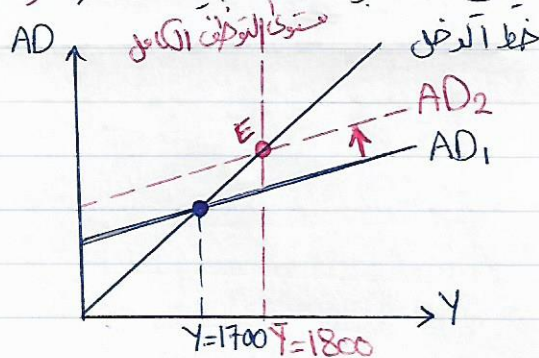 AD
مستوى التوظف الكامل
خط الدخل
AD2
E
AD1
Y
Y=1700
Ȳ=1800